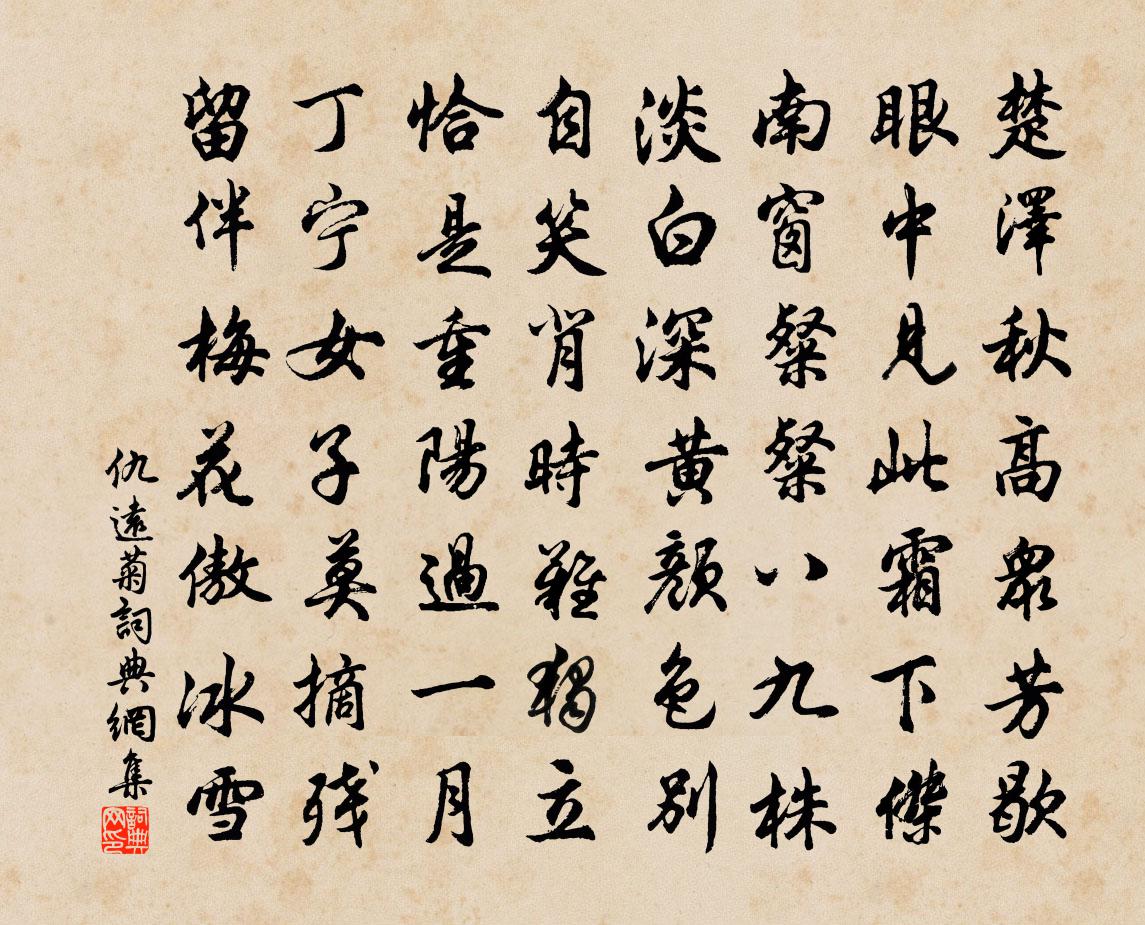 楚澤秋高衆芳歇
眼中見此霜下傑
南窗粲粲八九株
淡白深黄顔色別
自笑肖時難獨立
恰是重陽過一月
丁宁女子莫摘残
留伴梅花傲冰雪
仇遠菊詞典網集
詞典网印